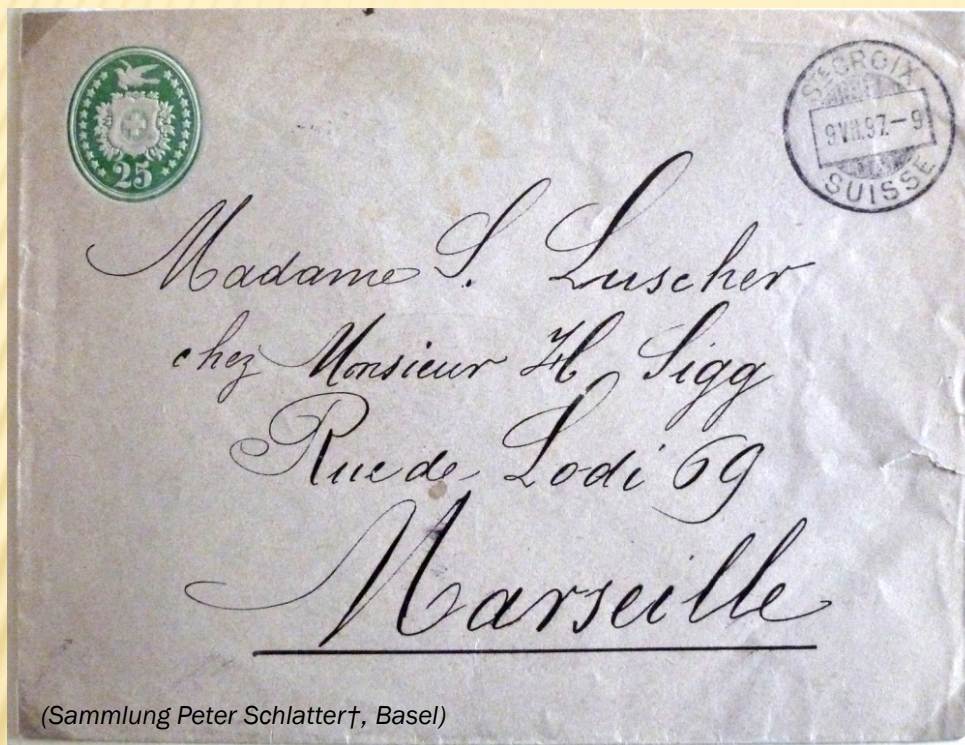 25
STE CROIX
9 VII.97.-9
SUISSE
Madame S. Luscher
chez Monsieur H Sigg
Rue de Lodi 69
Marseille
(Sammlung Peter Schlatter†, Basel)